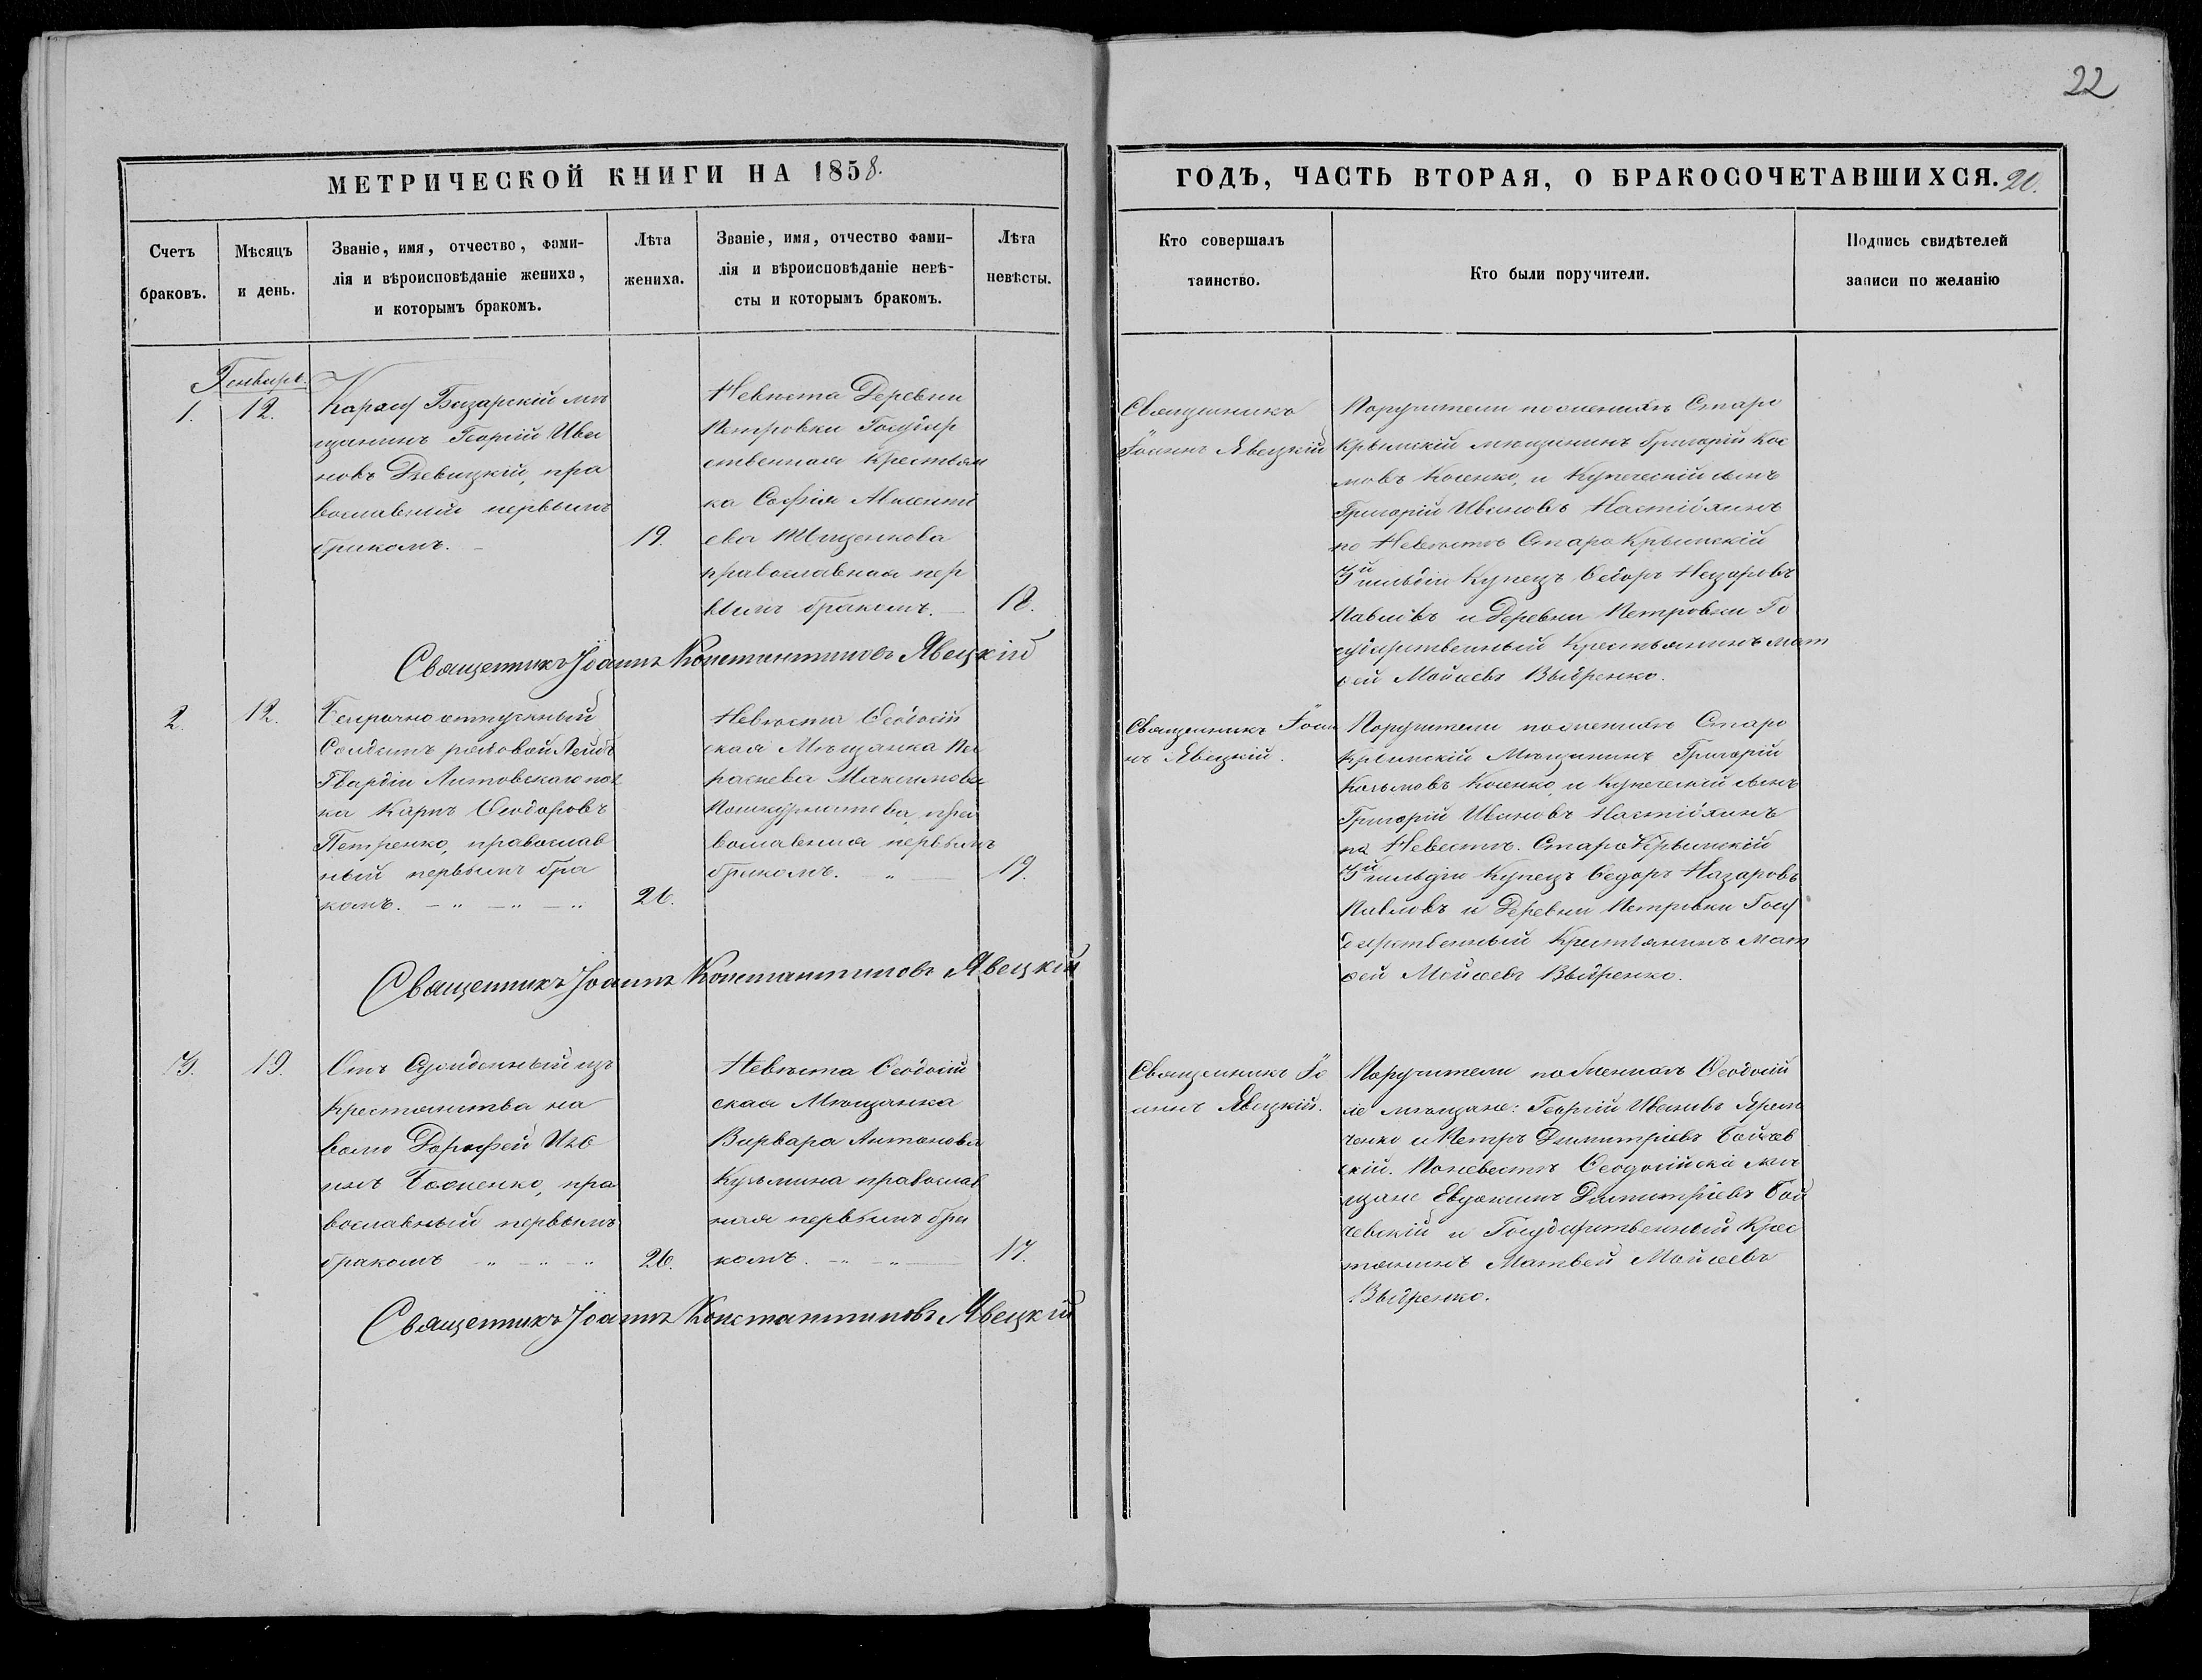 22
МЕТРИЧЕСКОЙ КНИГИ НА 1858.
Счетъ
браковъ.
Мѣсяцъ
и день.
Званіе, имя, отчество, фами-
лія и вѣроисповѣданіе жениха,
и которымъ бракомъ.
Лѣта
жениха.
Званіе, имя, отчество фами-
лія и вѣроисповѣданіе невѣ-
сты и которымъ бракомъ.
Лѣта
невѣсты.
ГОДЪ, ЧАСТЬ ВТОРАЯ, О БРАКОСОЧЕТАВШИХСЯ.
Кто совершалъ
таинство.
Кто были поручители.
Подпись свидѣтелей
записи по желанію
Генварь.
1.
12.
Карасу Базарскій мѣ
щанинъ Георгій Ива
новъ Дзевицкій, пра
вославный первымъ
бракомъ.
19.
Невѣста Деревни
Петровки Государ
ственная Крестьян
ка Софія Авксенті
ева Тищенкова
православная пер
вымъ бракомъ.
18.
Священникъ
Іоаннъ Явецкій
Поручители по женихѣ Старо
Крымскій мѣщанинъ Григорій Кос
мовъ Косенко, и Купеческій сынъ
Григорій Ивановъ
по Невѣстѣ Старо Крымскій
3й гильдіи Купецъ Ѳедоръ Назаровъ
Павловъ и Деревни Петровки Го
сударственный Крестьянинъ Мат
вей Мойсеевъ Выдренко.
Священникъ Іоаннъ Константиновъ Явецкій
2.
12.
Безсрочно отпускный
Солдатъ рядовой Лейбъ
Гвардіи Литовскаго пол
ка Карпъ Ѳеодоровъ
Петренко, православ
ный первымъ бра
комъ.
26.
Невѣста Ѳеодосій
ская Мѣщанка Па
раскева Максимова
пра
вославная первымъ
бракомъ.
19.
Священникъ Іоан
нъ Явецкій.
Поручители по женихѣ Старо
Крымскій Мѣщанинъ Григорій
Козьмовъ Косенко, и Купеческій сынъ
Григорій Ивановъ
по Невестѣ. Старо Крымскій
3й гильдіи Купецъ Ѳедоръ Назаровъ
Павловъ и Деревни Петровки Госу
дарственный Крестьянинъ Мат
вей Мойсеевъ Выдренко.
Священникъ Іоаннъ Константиновъ Явецкій
3.
19.
Отъ Сужденный изъ
Крестьянства на
волю Дорофей
Босненко, пра
вославный первымъ
бракомъ
26.
Невѣста Ѳеодосій
ская Мѣщанка
Варвара Антонова
Кузьмина православ
ная первымъ бра
комъ.
17.
Священникъ Іо
аннъ Явецкій.
Поручители по Женихѣ Ѳеодосій
іе мѣщане: Георгій Ивановъ Ярем
ченко и Петръ Димитріевъ Бойчев
скій. По невестѣ Ѳеодосійскіе мѣ
щане Евдокимъ Димитріевъ Бой
чевскій и Государственный Крес
тянинъ Матвей Мойсеевъ
Выдренко.
Священникъ Іоаннъ Константиновъ Явецкій